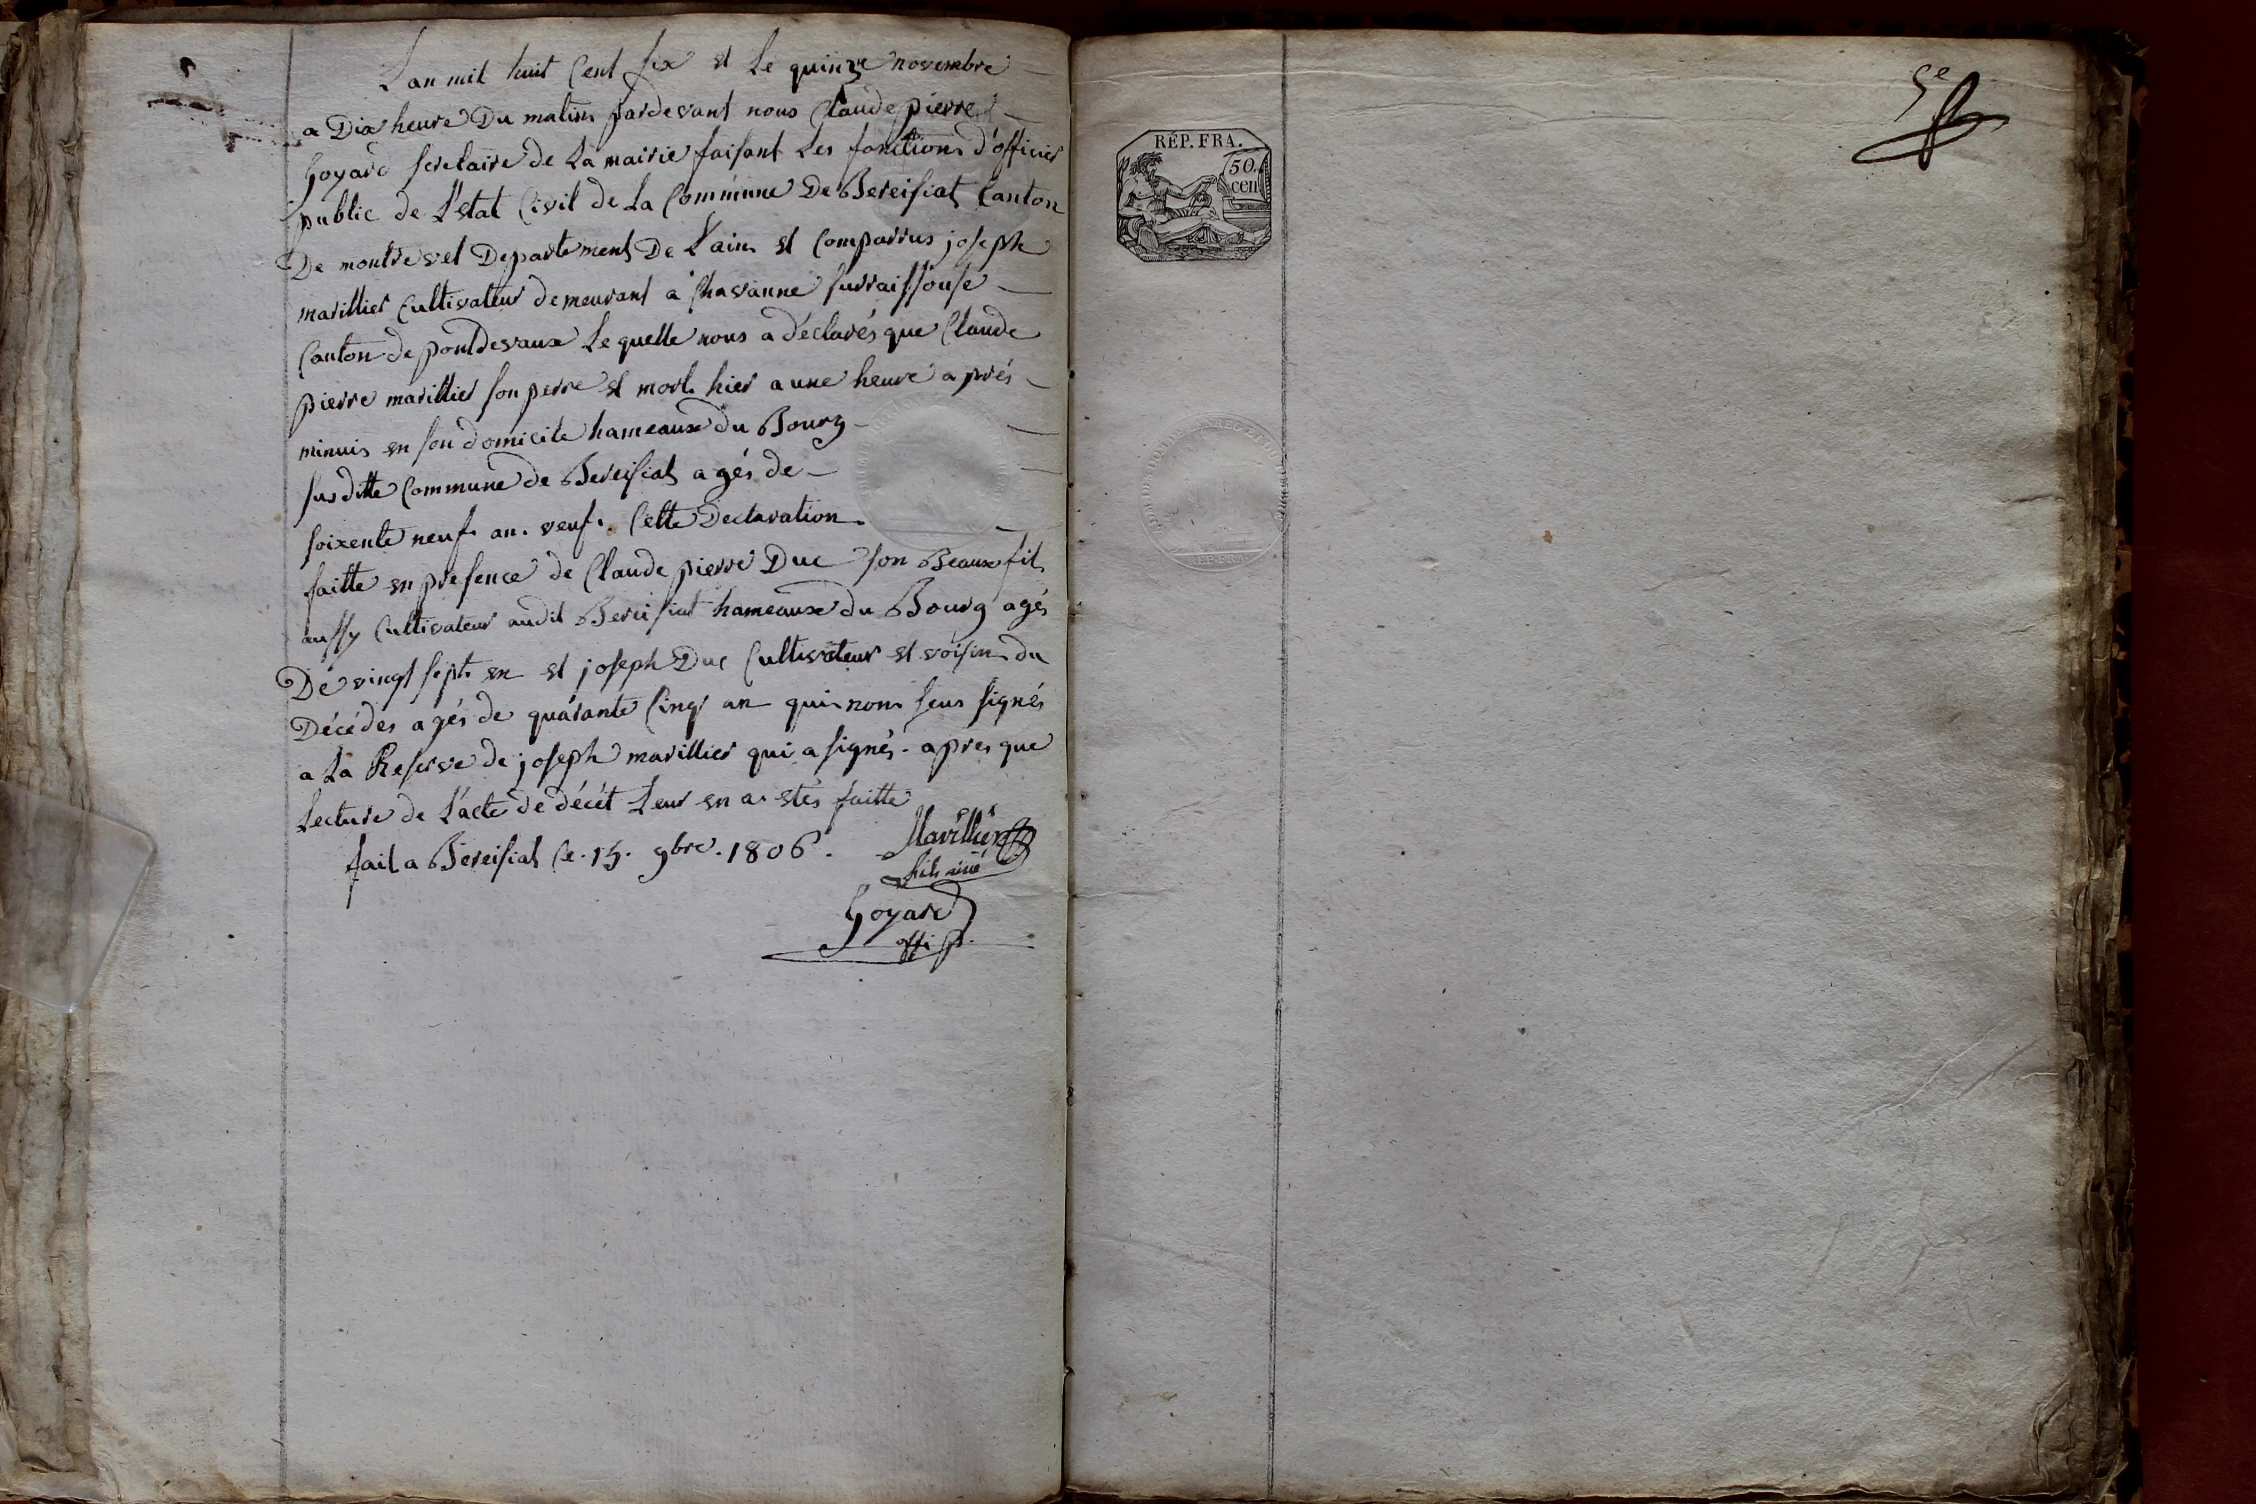 Lan mil huit Cent six et Le quinze novembre
a Dix heure Du matin pardevant nous Claude pierre
Goyard secretaire de La mairie faisant Les fonctions d'officier
public de L'etat Civil de La Commune De Bereisiat Canton
De montrevel Departement De L'ain et Comparrus joseph
marillier Cultivateur demeurant a Chavanne surraissouse
Canton de pontdevaux Le quelle nous a déclarés que Claude
pierre marillier son perre et mort hier a une heure aprés
minuis en son domicile hameaux du Bourg
susditte Commune de Bereisiat agés de
soixente neuf an. veuf. Cette Declaration
faitte en presence de Claude pierre Duc son Beaux fil
aussy Cultivateur audit Bereisiat hameaux du Bourg agés
De vingt sept an et joseph Duc Cultivateur et voisin du
Décédes agés de quarante Cinq an qui non seus signés
a La Reserve de joseph marillier qui a signés. apres que
Lecture de L'acte de décét Leur en a etés faitte
fait a Bereisiat Ce. 15. 9bre. 1806.
Marillier
fils ainé
Goyard
offi p.
5e
RÉP. FRA.
50
cen